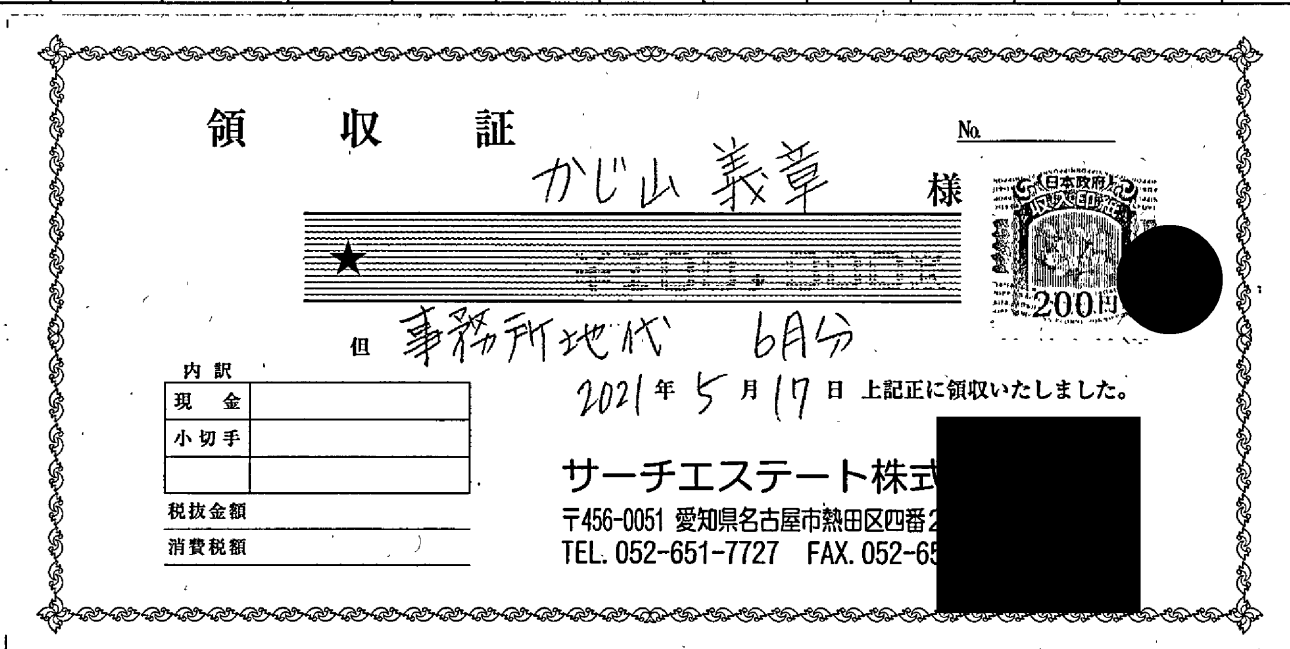 領収証
No.
かじ山 義章 様
日本政府
収入印紙
200円
★ ¥100,000※
但 事務所地代 6月分
2021年5月17日 上記正に領収いたしました。
内訳
現金
小切手
税抜金額
消費税額
サーチエステート株式
〒456-0051 愛知県名古屋市熱田区四番2
TEL. 052-651-7727 FAX. 052-65